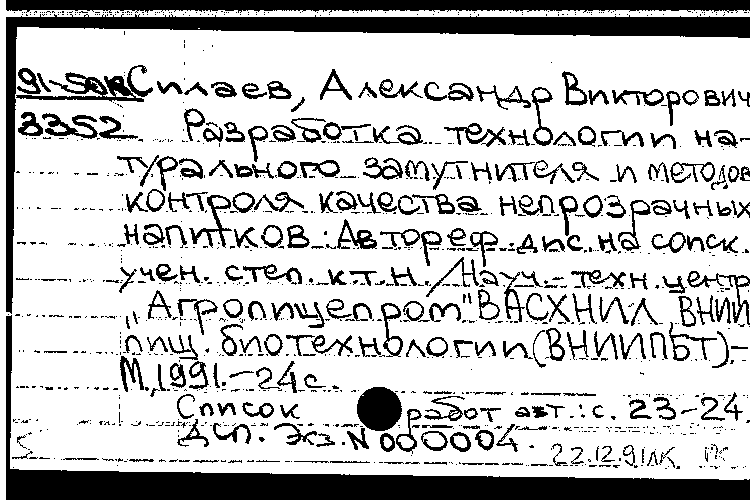 91-50в Силаев, Александр Викторович
3352 Разработка технологии на-
турального замутнителя и методов
контроля качества непрозрачных
напитков: Автореф. дис. на соиск.
учен. степ. к.т.н. /Науч.-техн. центр
"Агропищепром" ВАСХНИЛ, ВНИИ
пищ. биотехнологии (ВНИИПБТ)-
М.,1991.-24с.
Список работ авт.: с. 23-24.
ДСП. Экз. N 000004.
22.12.91